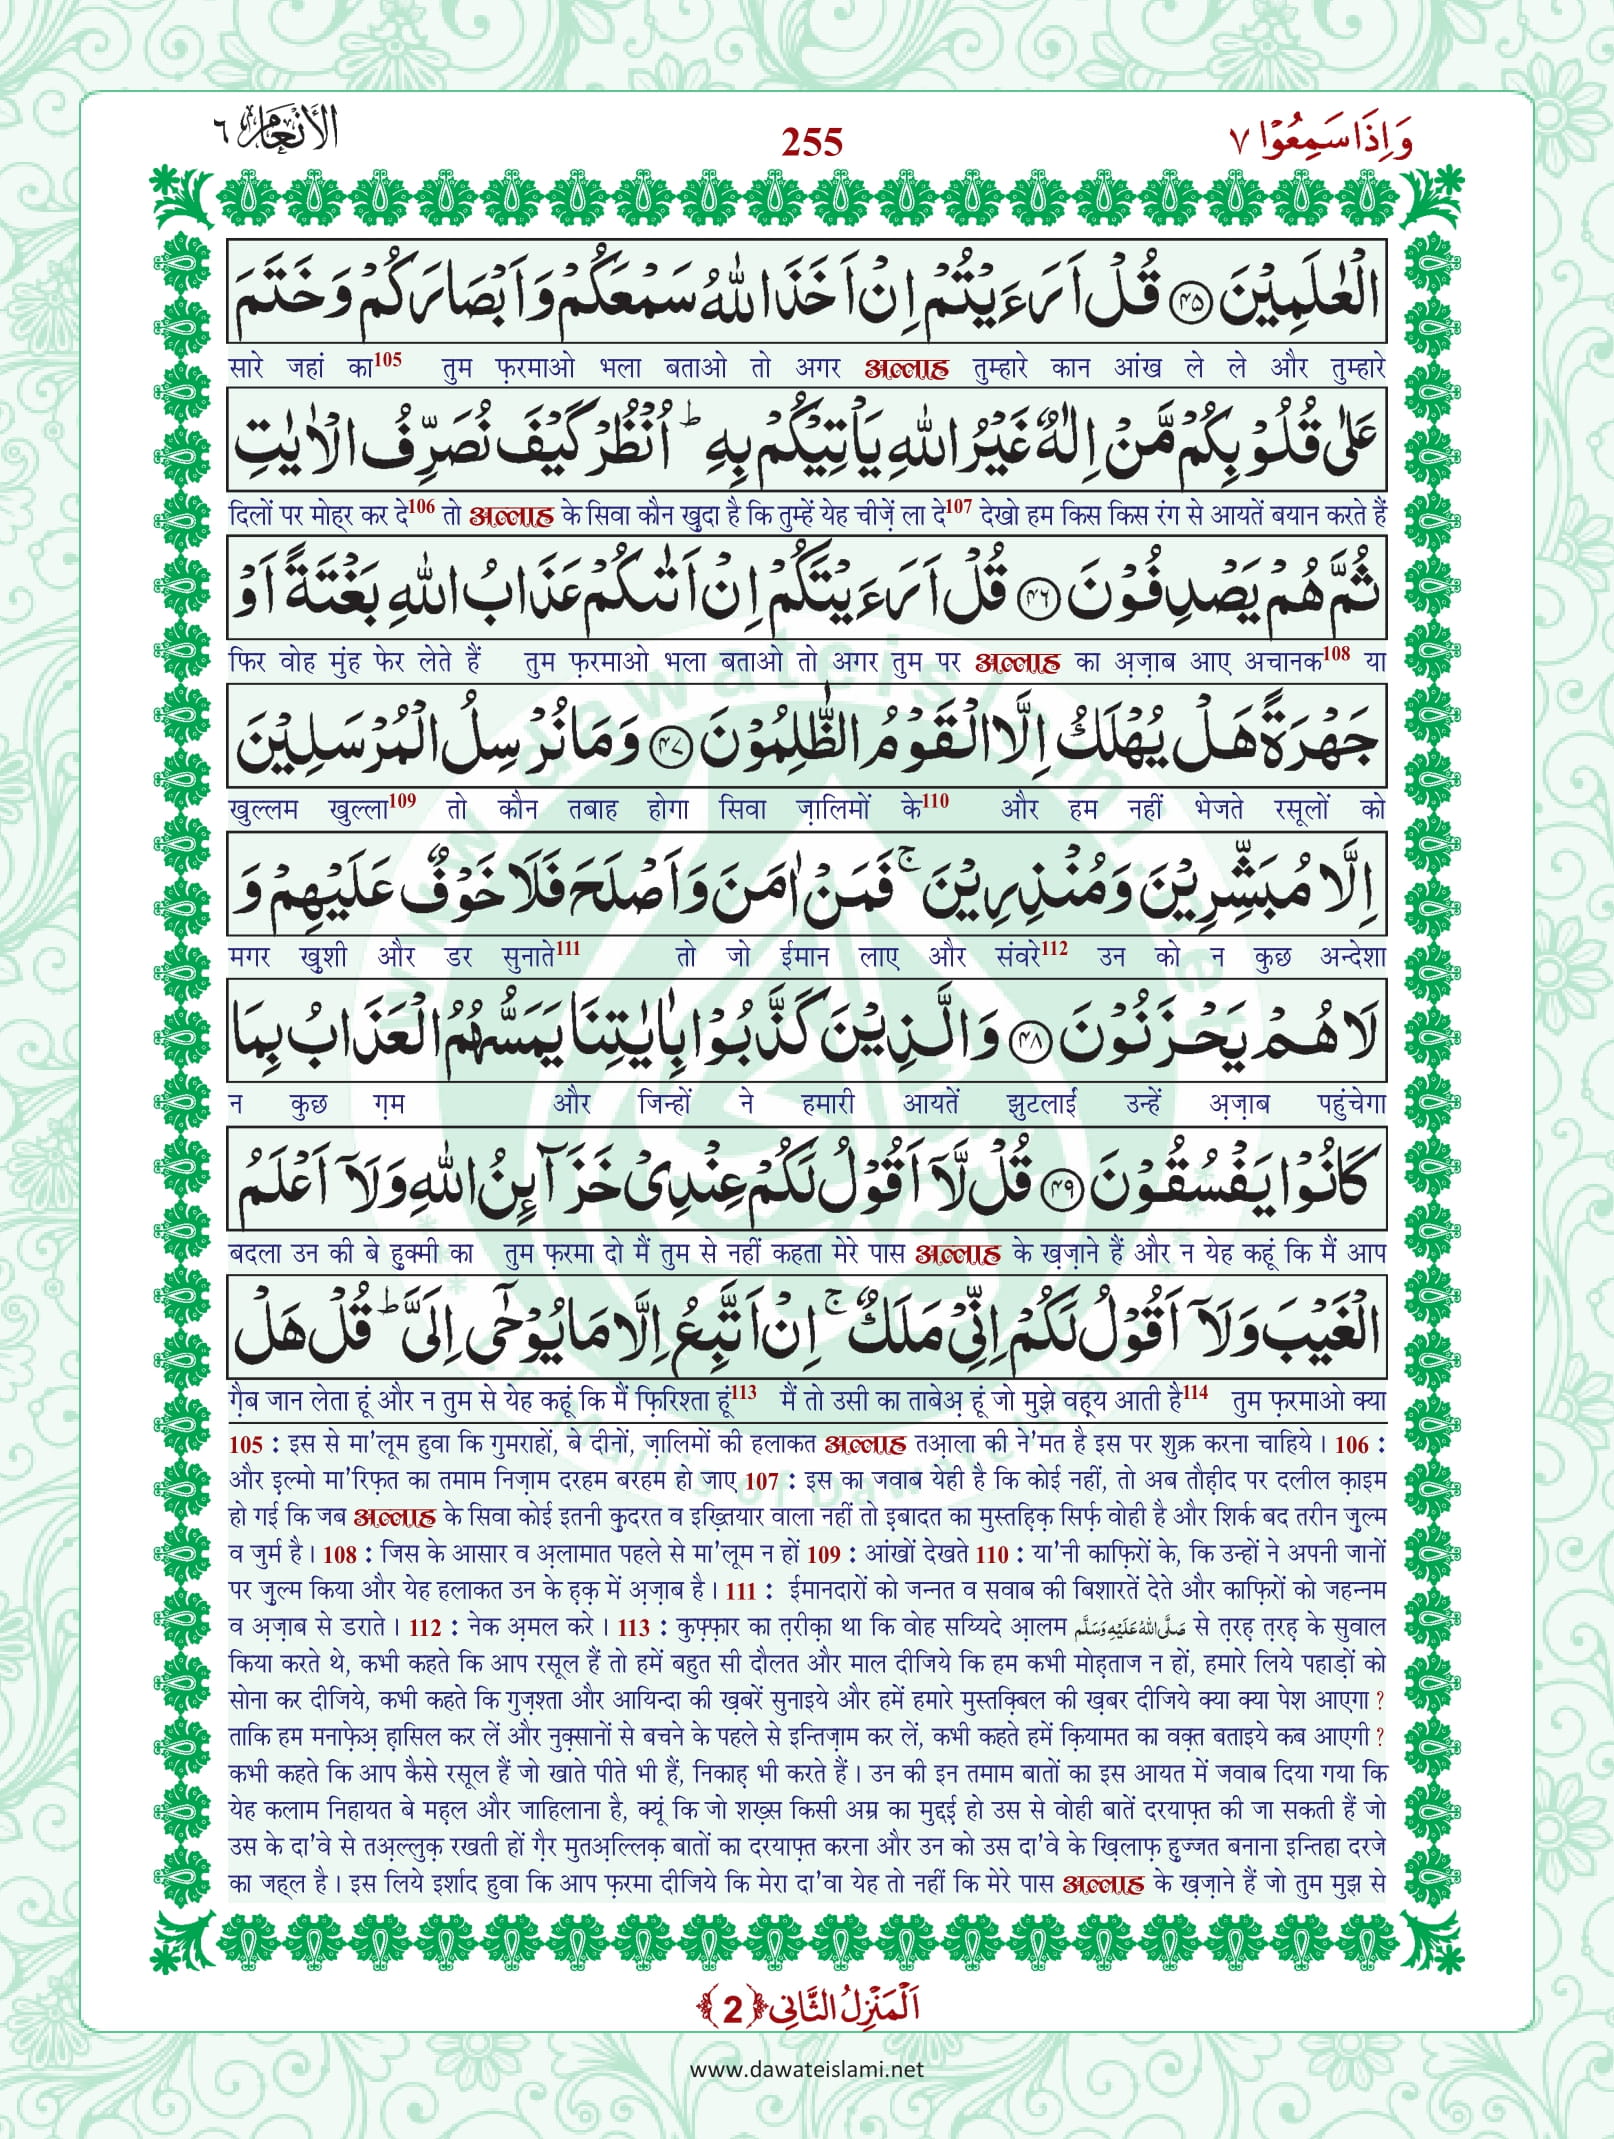 وَ اِذَا سَمِعُوۡا ٧
255
الْاَنْعَام ٦
الْعٰلَمِیْنَ ﴿۴۵﴾ قُلْ اَرَءَیْتُمْ اِنْ اَخَذَ اللّٰهُ سَمْعَكُمْ وَ اَبْصَارَكُمْ وَ خَتَمَ
सारे जहां का105 तुम फ़रमाओ भला बताओ तो अगर अल्लाह तुम्हारे कान आंख ले ले और तुम्हारे
عَلٰى قُلُوْبِكُمْ مَّنْ اِلٰهٌ غَیْرُ اللّٰهِ یَاْتِیْكُمْ بِهٖ ؕ اُنْظُرْ كَیْفَ نُصَرِّفُ الْاٰیٰتِ
दिलों पर मोह्र कर दे106 तो अल्लाह के सिवा कौन ख़ुदा है कि तुम्हें येह चीज़ें ला दे107 देखो हम किस किस रंग से आयतें बयान करते हैं
ثُمَّ هُمْ یَصْدِفُوْنَ ﴿۴۶﴾ قُلْ اَرَءَیْتَكُمْ اِنْ اَتٰىكُمْ عَذَابُ اللّٰهِ بَغْتَةً اَوْ
फिर वोह मुंह फेर लेते हैं तुम फ़रमाओ भला बताओ तो अगर तुम पर अल्लाह का अ़ज़ाब आए अचानक108 या
جَهْرَةً هَلْ یُهْلَكُ اِلَّا الْقَوْمُ الظّٰلِمُوْنَ ﴿۴۷﴾ وَ مَا نُرْسِلُ الْمُرْسَلِیْنَ
खुल्लम खुल्ला109 तो कौन तबाह होगा सिवा ज़ालिमों के110 और हम नहीं भेजते रसूलों को
اِلَّا مُبَشِّرِیْنَ وَ مُنْذِرِیْنَ ۚ فَمَنْ اٰمَنَ وَ اَصْلَحَ فَلَا خَوْفٌ عَلَیْهِمْ وَ
मगर ख़ुशी और डर सुनाते111 तो जो ईमान लाए और संवरे112 उन को न कुछ अन्देशा
لَا هُمْ یَحْزَنُوْنَ ﴿۴۸﴾ وَ الَّذِیْنَ كَذَّبُوْا بِاٰیٰتِنَا یَمَسُّهُمُ الْعَذَابُ بِمَا
न कुछ ग़म और जिन्हों ने हमारी आयतें झुटलाईं उन्हें अ़ज़ाब पहुंचेगा
كَانُوْا یَفْسُقُوْنَ ﴿۴۹﴾ قُلْ لَّاۤ اَقُوْلُ لَكُمْ عِنْدِیْ خَزَآئِنُ اللّٰهِ وَ لَاۤ اَعْلَمُ
बदला उन की बे हुक्मी का तुम फ़रमा दो मैं तुम से नहीं कहता मेरे पास अल्लाह के ख़ज़ाने हैं और न येह कहूं कि मैं आप
الْغَیْبَ وَ لَاۤ اَقُوْلُ لَكُمْ اِنِّیْ مَلَكٌ ۚ اِنْ اَتَّبِعُ اِلَّا مَا یُوْحٰۤى اِلَیَّ ؕ قُلْ هَلْ
ग़ैब जान लेता हूं और न तुम से येह कहूं कि मैं फ़िरिश्ता हूं113 मैं तो उसी का ताबेअ़ हूं जो मुझे वह्य आती है114 तुम फ़रमाओ क्या
105 : इस से मा'लूम हुवा कि गुमराहों, बे दीनों, ज़ालिमों की हलाकत अल्लाह तआ़ला की ने'मत है इस पर शुक्र करना चाहिये। 106 :
और इल्मो मा'रिफ़त का तमाम निज़ाम दरहम बरहम हो जाए 107 : इस का जवाब येही है कि कोई नहीं, तो अब तौह़ीद पर दलील क़ाइम
हो गई कि जब अल्लाह के सिवा कोई इतनी क़ुदरत व इख़्तियार वाला नहीं तो इ़बादत का मुस्तहि़क़ सिर्फ़ वोही है और शिर्क बद तरीन ज़ुल्म
व जुर्म है। 108 : जिस के आसार व अ़लामात पहले से मा'लूम न हों 109 : आंखों देखते 110 : या'नी काफ़िरों के, कि उन्हों ने अपनी जानों
पर ज़ुल्म किया और येह हलाकत उन के ह़क़ में अ़ज़ाब है। 111 : ईमानदारों को जन्नत व सवाब की बिशारतें देते और काफ़िरों को जहन्नम
व अ़ज़ाब से डराते। 112 : नेक अ़मल करे। 113 : कुफ़्फ़ार का त़रीक़ा था कि वोह सय्यिदे आ़लम صَلَّى اللّٰهُ عَلَيْهِ وَسَلَّم से त़रह़ त़रह़ के सुवाल
किया करते थे, कभी कहते कि आप रसूल हैं तो हमें बहुत सी दौलत और माल दीजिये कि हम कभी मोह़ताज न हों, हमारे लिये पहाड़ों को
सोना कर दीजिये, कभी कहते कि गुज़श्ता और आयिन्दा की ख़बरें सुनाइये और हमें हमारे मुस्तक़्बिल की ख़बर दीजिये क्या क्या पेश आएगा ?
ताकि हम मनाफ़ेअ़ ह़ासिल कर लें और नुक़्सानों से बचने के पहले से इन्तिज़ाम कर लें, कभी कहते हमें क़ियामत का वक़्त बताइये कब आएगी ?
कभी कहते कि आप कैसे रसूल हैं जो खाते पीते भी हैं, निकाह़ भी करते हैं। उन की इन तमाम बातों का इस आयत में जवाब दिया गया कि
येह कलाम निहायत बे मह़ल और जाहिलाना है, क्यूं कि जो शख़्स किसी अम्र का मुद्दई़ हो उस से वोही बातें दरयाफ़्त की जा सकती हैं जो
उस के दा'वे से तअ़ल्लुक़ रखती हों ग़ैर मुतअ़ल्लिक़ बातों का दरयाफ़्त करना और उन को उस दा'वे के ख़िलाफ़ ह़ुज्जत बनाना इन्तिहा दरजे
का जह्ल है। इस लिये इर्शाद हुवा कि आप फ़रमा दीजिये कि मेरा दा'वा येह तो नहीं कि मेरे पास अल्लाह के ख़ज़ाने हैं जो तुम मुझ से
اَلْمَنْزِلُ الثَّانِی ﴿2﴾
www.dawateislami.net